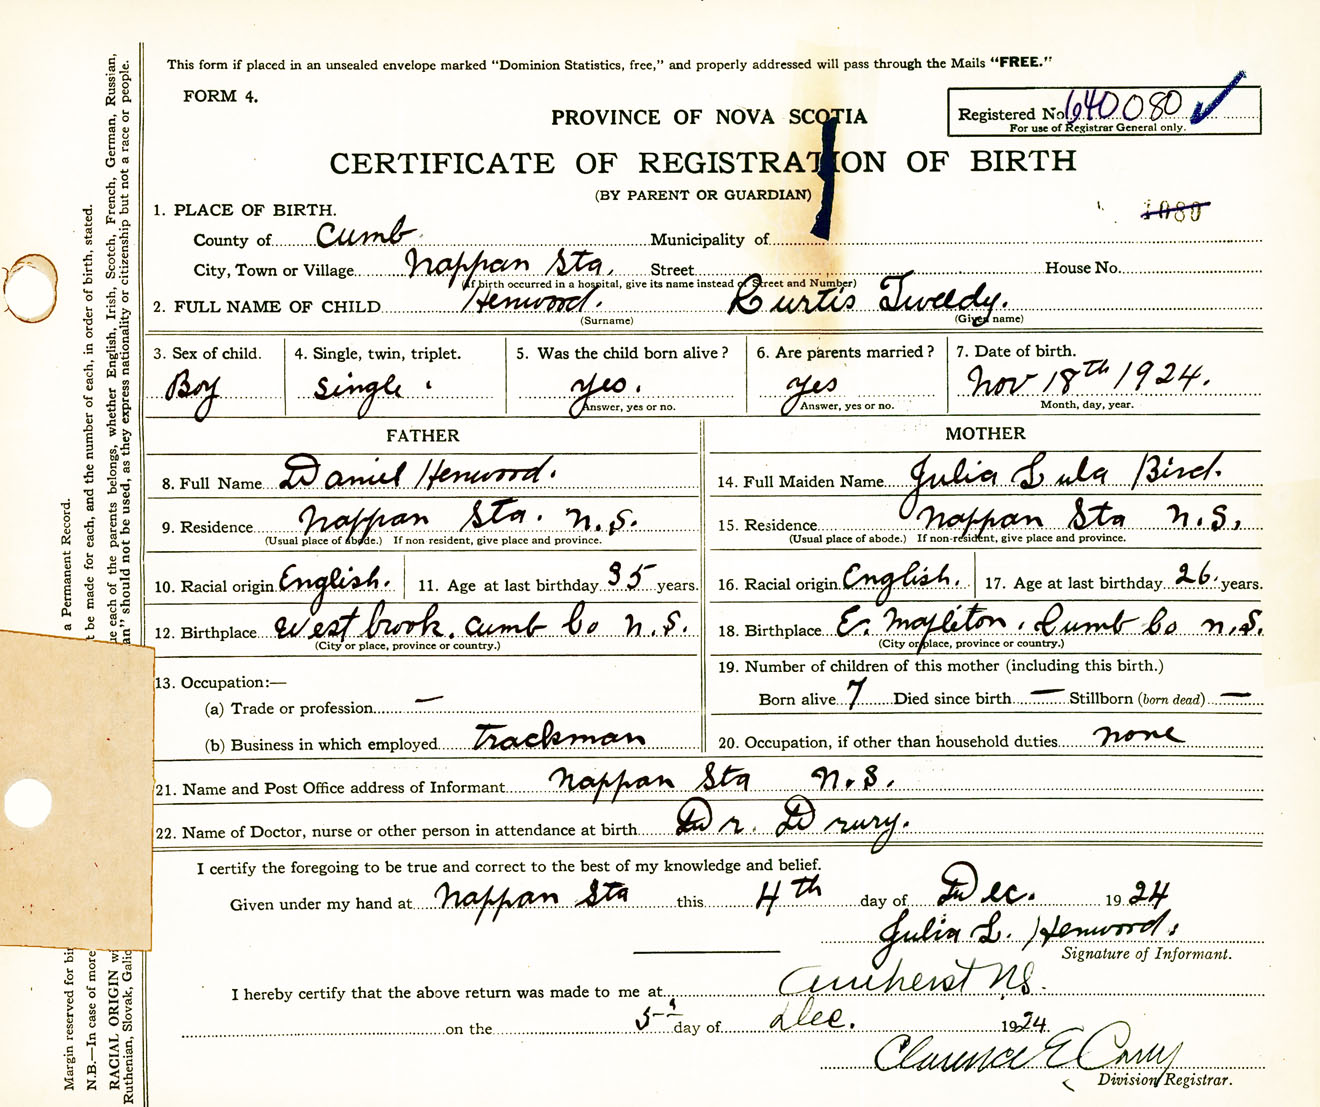 This form if placed in an unsealed envelope marked "Dominion Statistics, free," and properly addressed will pass through the Mails "FREE."
FORM 4.
PROVINCE OF NOVA SCOTIA
Registered No. 640080
For use of Registrar General only.
CERTIFICATE OF REGISTRATION OF BIRTH
(BY PARENT OR GUARDIAN)
1080
1. PLACE OF BIRTH.
County of Cumb Municipality of
City, Town or Village Nappan Sta. Street House No.
(If birth occurred in a hospital, give its name instead of Street and Number)
2. FULL NAME OF CHILD Henwood. Kurtis Tweedy.
(Surname) (Given name)
3. Sex of child. 4. Single, twin, triplet. 5. Was the child born alive? 6. Are parents married? 7. Date of birth.
Boy Single Yes. Yes Nov 18th 1924.
Answer, yes or no. Answer, yes or no. Month, day, year.
FATHER MOTHER
8. Full Name Daniel Henwood. 14. Full Maiden Name Julia Lula Bird.
9. Residence Nappan Sta. N.S. 15. Residence Nappan Sta N.S.
(Usual place of abode.) If non resident, give place and province. (Usual place of abode.) If non-resident, give place and province.
10. Racial origin English. 11. Age at last birthday 35 years. 16. Racial origin English. 17. Age at last birthday 26 years.
12. Birthplace West brook. Cumb Co N.S. 18. Birthplace E. Mapleton. Cumb Co N.S.
(City or place, province or country.) (City or place, province or country.)
13. Occupation:— 19. Number of children of this mother (including this birth.)
(a) Trade or profession — Born alive 7 Died since birth — Stillborn (born dead) —
(b) Business in which employed Trackman 20. Occupation, if other than household duties none
21. Name and Post Office address of Informant Nappan Sta N.S.
22. Name of Doctor, nurse or other person in attendance at birth Dr. Drury.
I certify the foregoing to be true and correct to the best of my knowledge and belief.
Given under my hand at Nappan Sta this 4th day of Dec. 1924
Julia L. Henwood.
Signature of Informant.
I hereby certify that the above return was made to me at Amherst NS.
on the 5 day of Dec. 1924
Clarence E
Division Registrar.
Margin reserved for bin
a Permanent Record.
N.B.—In case of more
t be made for each, and the number of each, in order of birth, stated.
RACIAL ORIGIN
ue each of the parents belongs, whether English, Irish, Scotch, French, German, Russian,
Ruthenian, Slovak, Galic
an" should not be used, as they express nationality or citizenship but not a race or people.